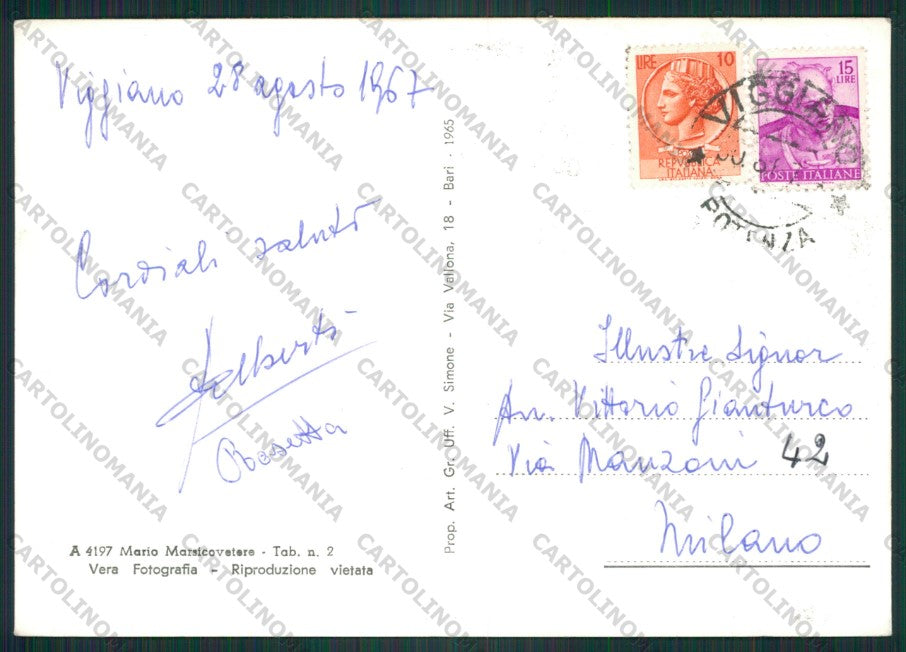 Viggiano 28 agosto 1967
Cordiali saluti
Rosetta
A 4197 Mario Marsicovetere - Tab. n. 2
Vera Fotografia - Riproduzione vietata
Prop. Art. Gr. Uff. V. Simone - Via Vallona, 18 - Bari - 1965
LIRE 10
REPVBBLICA
ITALIANA
15
LIRE
POSTE ITALIANE
VIGGIANO
POTENZA
Illustre Signor
Avv. Vittorio Gianturco
Via Manzoni 42
Milano
CARTOLINOMANIA